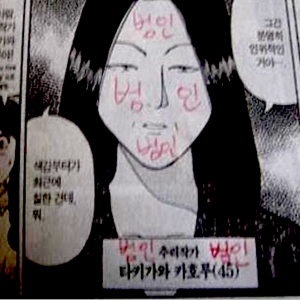 범인
그건
분명히
인위적인
거야….
범 인
범인
색깔부터가
최근에
칠한 건데,
뭐.
범인 추리작가 범인
타키가와 카호루(45)